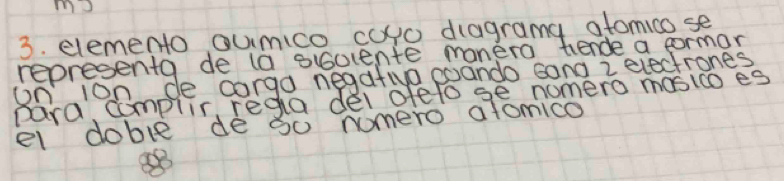 3. elemento quimico cuyo diagrama atomico se
representa de la siguiente manera tiende a formar
un ion de carga negativa cuando gana 2 electrones
para complir regla del oteto se numero masico es
el doble de su numero atomico